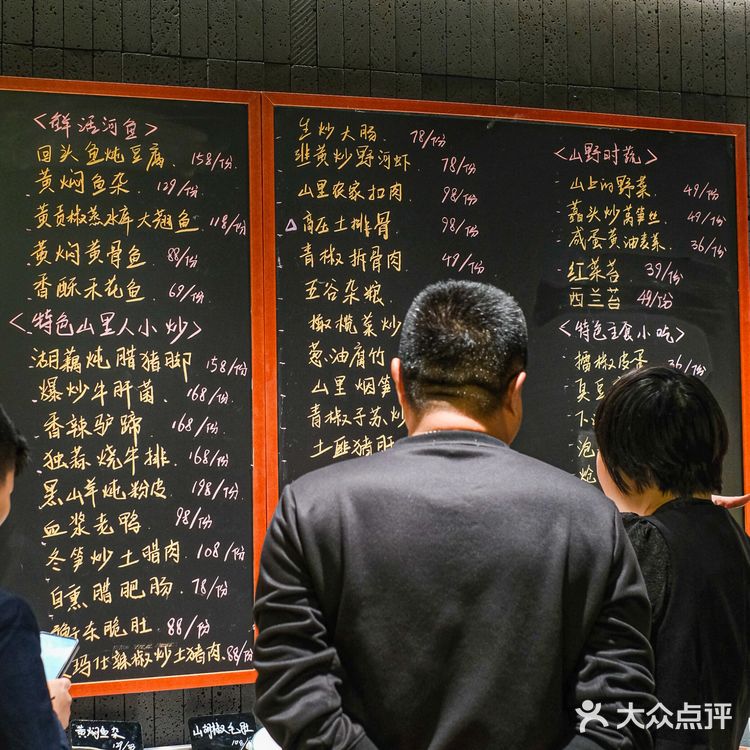 <鲜活河鱼>
回头鱼炖豆腐 158/份
黄焖鱼杂 129/份
黄贡椒蒸水库大翘鱼 118/份
黄焖黄骨鱼 88/份
香酥禾花鱼 69/份
<特色山里人小炒>
湖藕炖腊猪脚 158/份
爆炒牛肝菌 168/份
香辣驴蹄 168/份
独蒜烧牛排 168/份
黑山羊炖粉皮 198/份
血浆老鸭 98/份
冬笋炒土腊肉 108/份
白熏腊肥肠 78/份
东脆肚 88/份
玛仕辣椒炒土猪肉 88/份
生炒大肠 78/份
韭黄炒野河虾 78/份
山里农家扣肉 98/份
高压土排骨 98/份
青椒拆骨肉 49/份
五谷杂粮
橄榄菜炒
葱油腐竹
山里烟笋
青椒子苏炒
土匪猪肝
<山野时蔬>
山上的野菜 49/份
藠头炒莴笋丝 49/份
咸蛋黄油麦菜 36/份
红菜苔 39/份
西兰苔 49/份
<特色主食小吃>
擂椒皮蛋 36/份
臭豆
下
泡
炝
黄焖鱼杂
129/份
山胡椒毛肚
大众点评